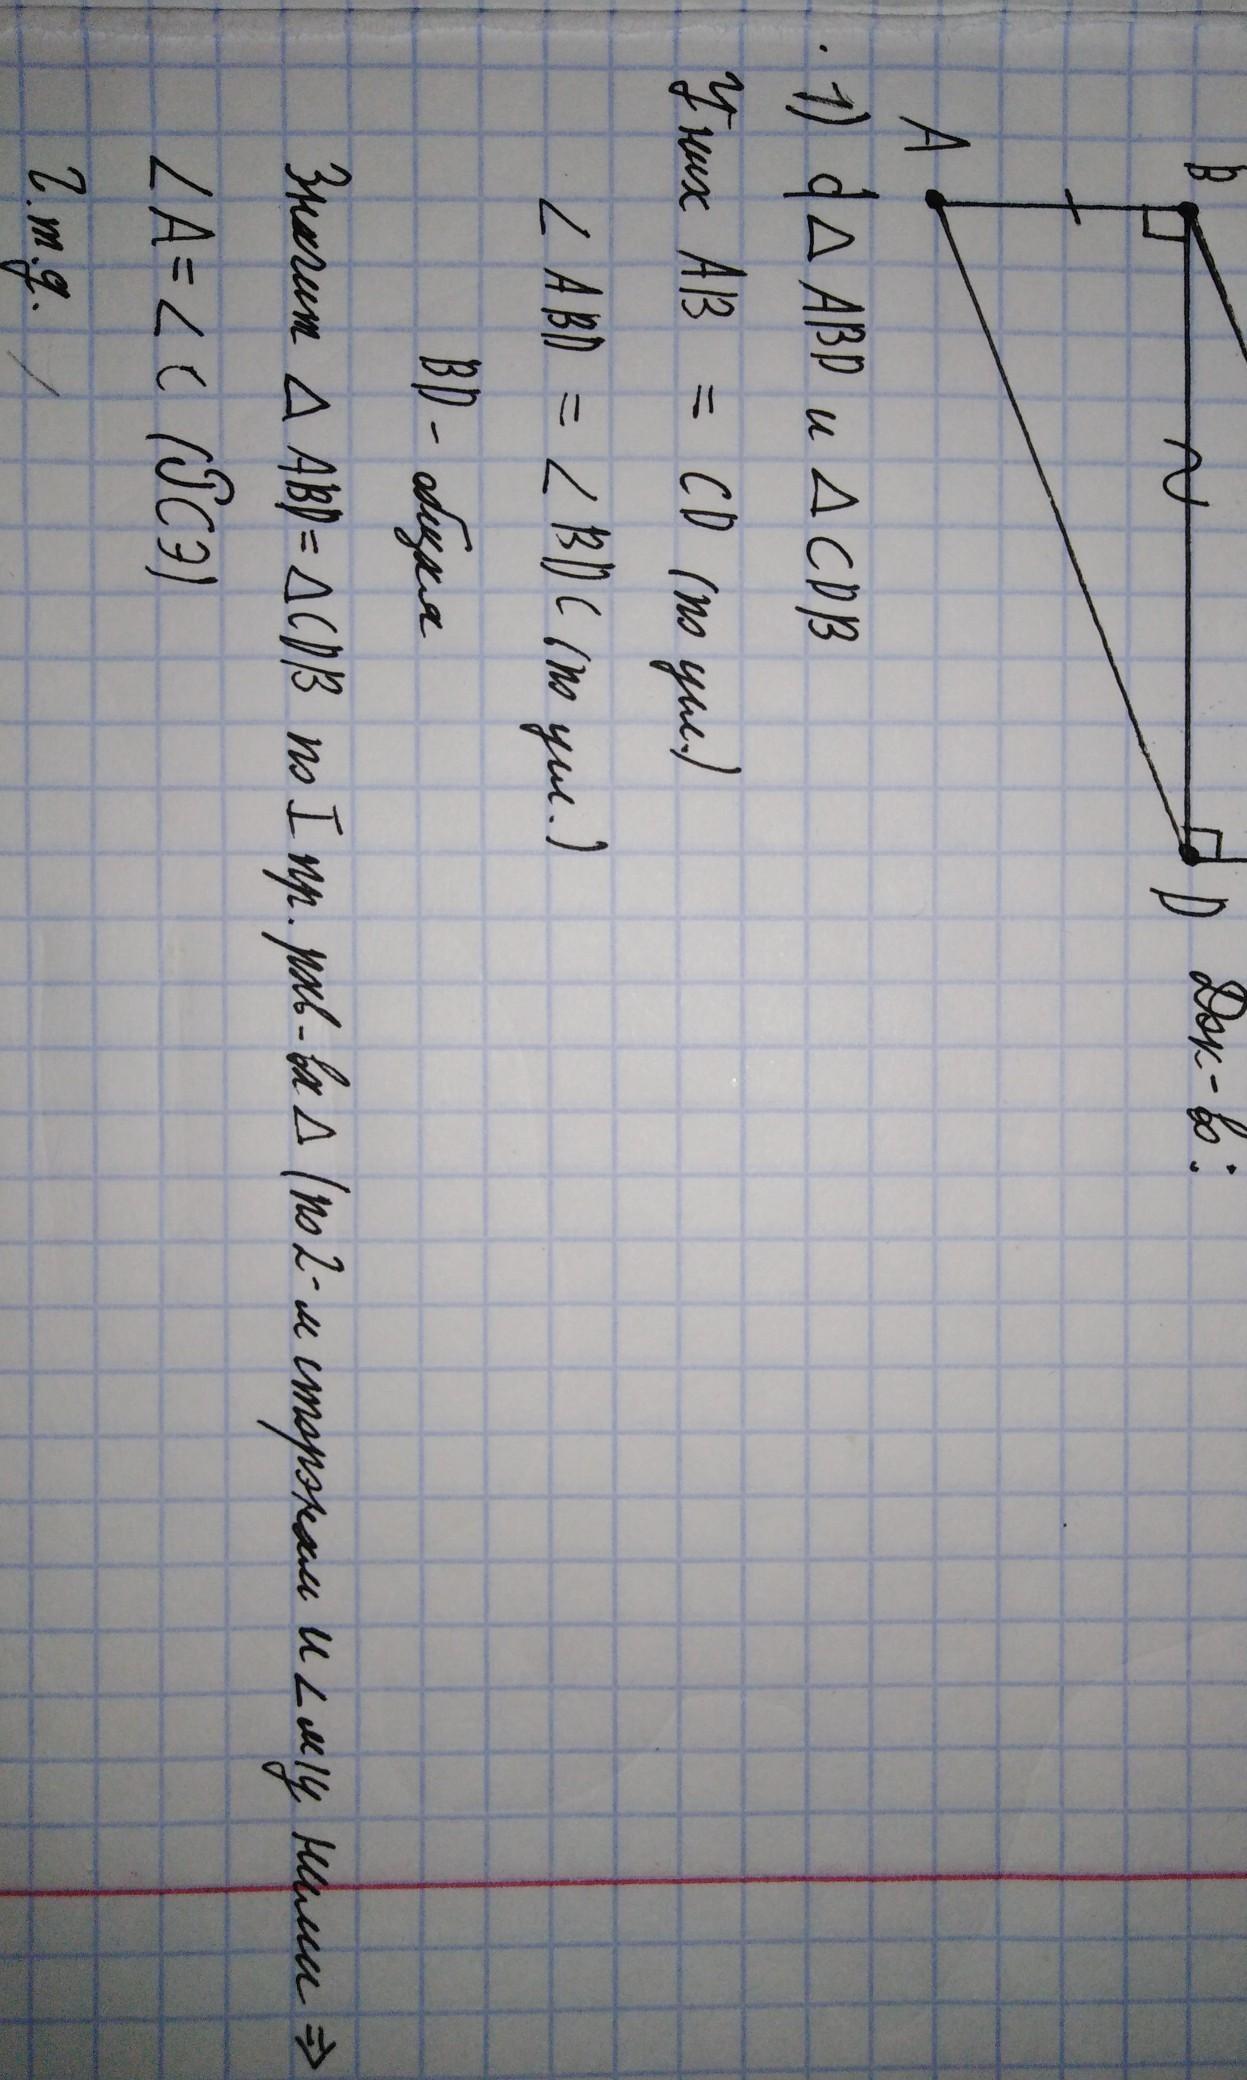 B
D
Док-во:
A
1) d △ ABD и △ CDB
У них AB = CD (по усл.)
∠ ABD = ∠ BDC (по усл.)
BD - общая
Значит △ ABD = △ CDB по I пр. рав-ва △ (по 2-м сторонам и ∠ м/у ними ⇒
∠ A = ∠ C (РСЭ)
Ч.т.д.